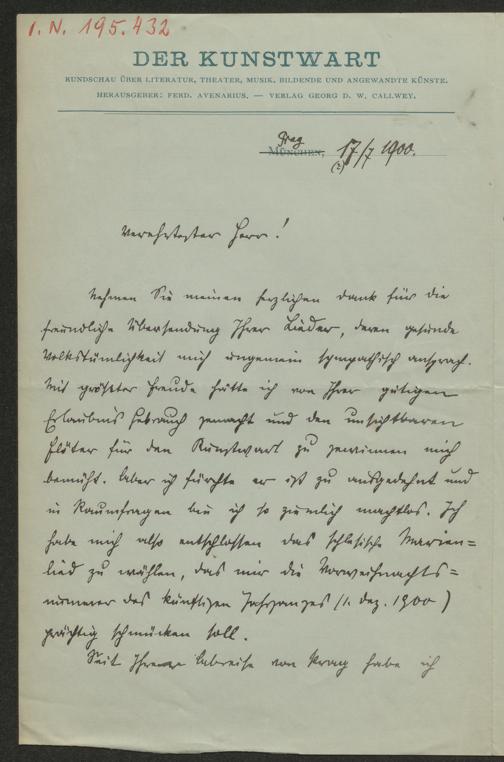 I. N. 195.432
DER KUNSTWART
RUNDSCHAU ÜBER LITERATUR, THEATER, MUSIK, BILDENDE UND ANGEWANDTE KÜNSTE.
HERAUSGEBER: FERD. AVENARIUS. — VERLAG GEORG D. W. CALLWEY.
Prag
MÜNCHEN, 17/7 1900.
(?)
Verehrtester Herr!
Nehmen Sie meinen herzlichen Dank für die
freundliche Übersendung Ihrer Lieder, deren gesunde
Volkstümlichkeit mich ungemein sympathisch ansprach.
Mit grösster Freude hätte ich von Ihrer gütigen
Erlaubnis Gebrauch gemacht und den unsichtbaren
Flöter für den Kunstwart zu gewinnen mich
bemüht. Aber ich fürchte er ist zu ausgedehnt und
in Raumfragen bin ich so ziemlich machtlos. Ich
habe mich also entschlossen das schlesische Marien=
lied zu wählen, das mir die Vorweihnachts=
nummer des künftigen Jahrganges (1. Dez. 1900)
prächtig schmücken soll.
Seit Ihrer Abreise von Prag habe ich